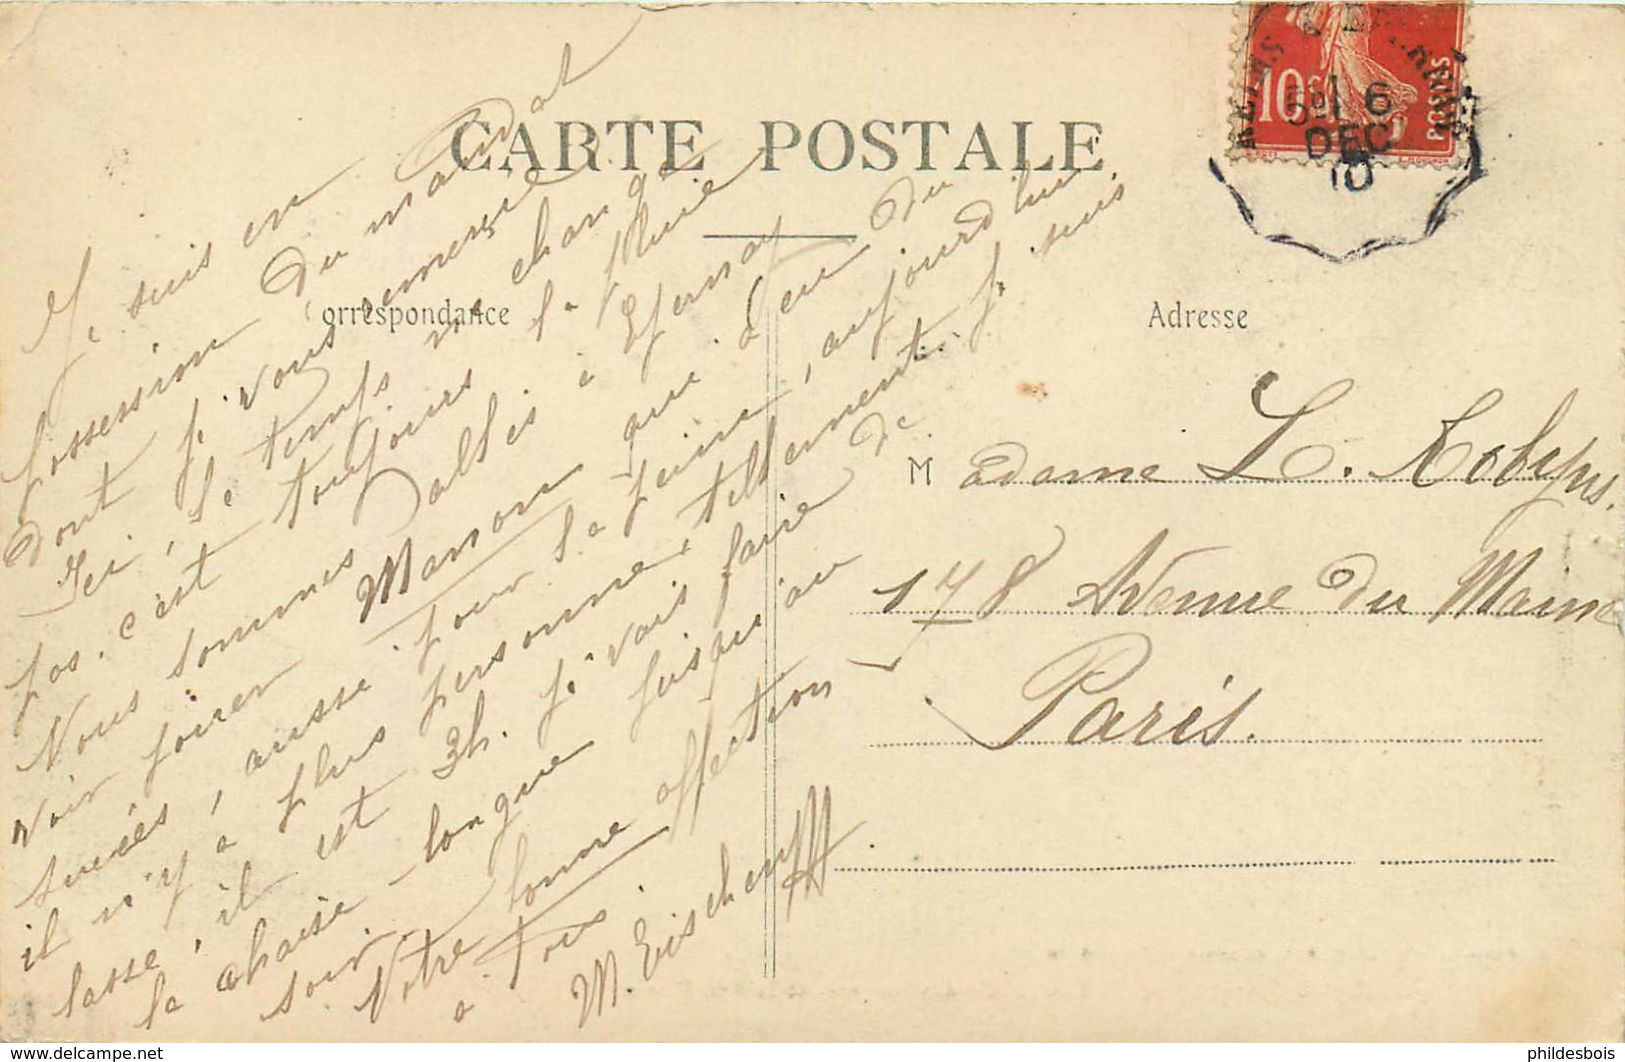 CARTE POSTALE
Correspondance
Adresse
10c
POSTES
6
DEC
10
Je suis en
possession du mandat
dont je vous remercie
Ici, le temps ne change
pas. c'est toujours la Pluie
Nous sommes allés à Epernay
voir jouer Manson que a eu du
succès, aussi pour la peine, aujourd'hui
il n'y a plus personne tellement je suis
lasse, il est 3h. je vais faire de
la chaise-longue jusqu'au
soir.
Votre bonne affection
a tous.
M.
Madame L. Robyns.
178 Avenue du Maine
Paris.
phildesbois
www.delcampe.net